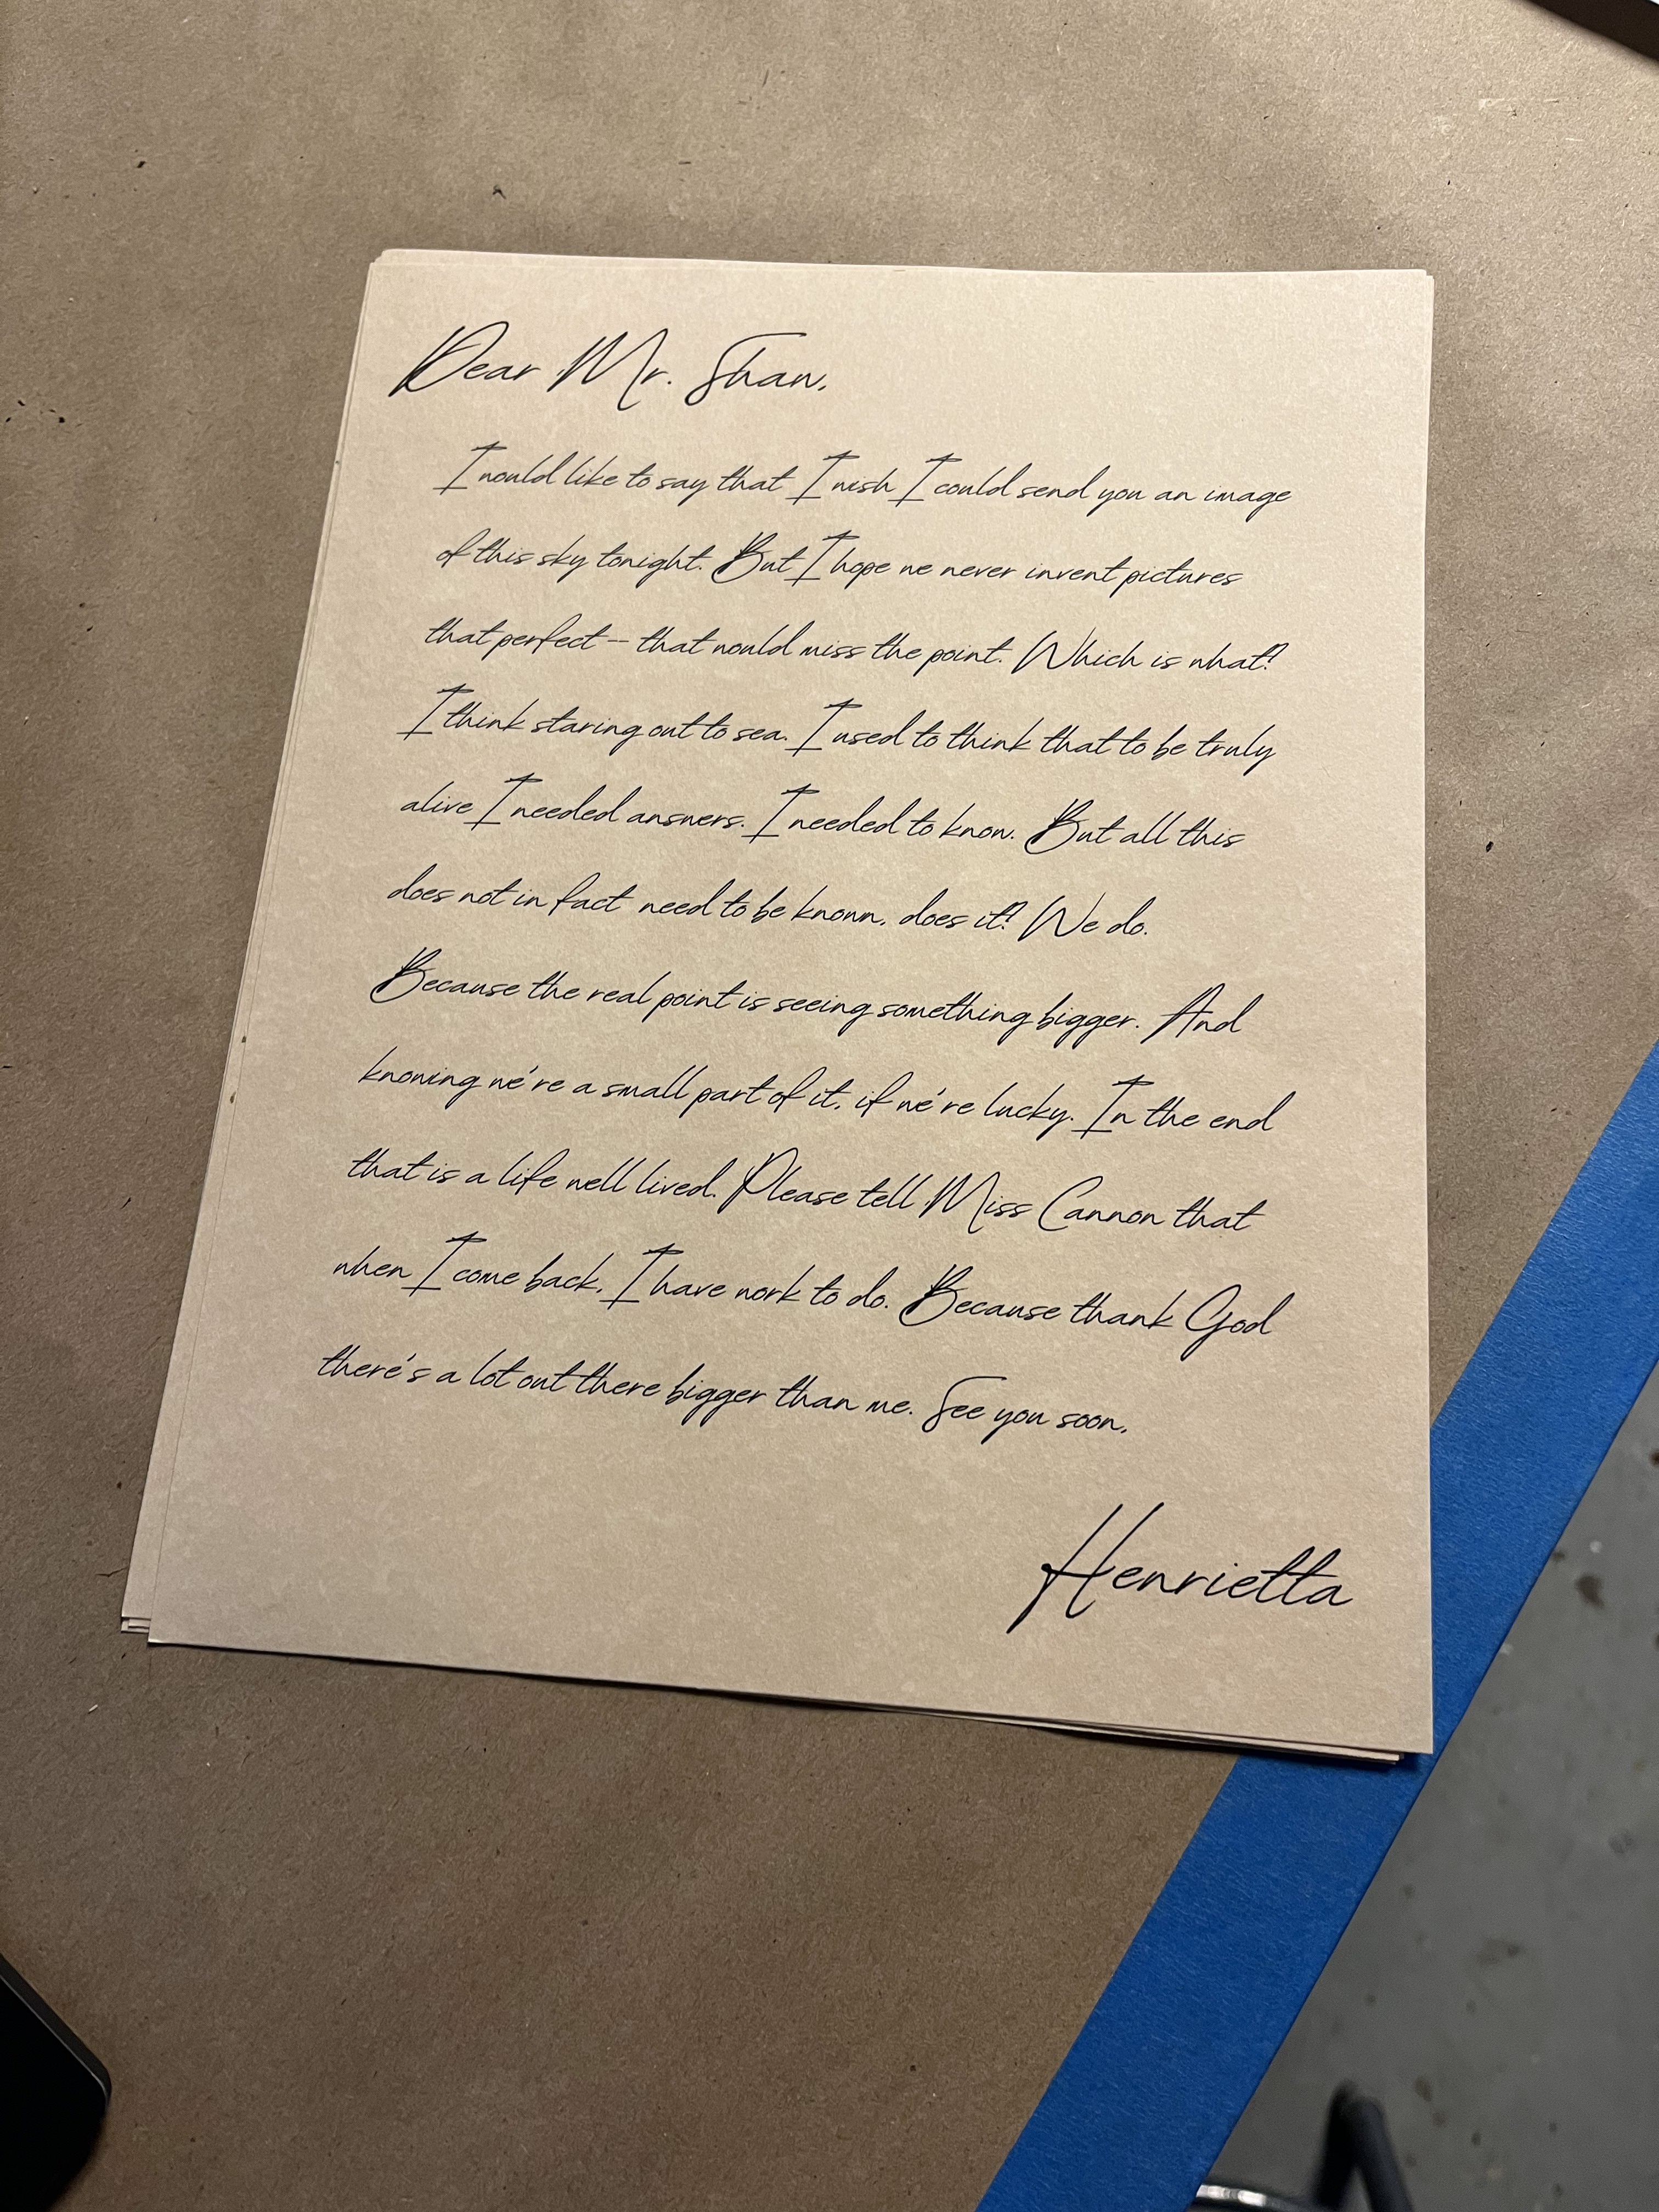 Dear Mr. Shaw,
I would like to say that I wish I could send you an image
of this sky tonight. But I hope we never invent pictures
that perfect -- that would miss the point. Which is what?
I think staring out to sea. I used to think that to be truly
alive I needed answers. I needed to know. But all this
does not in fact need to be known, does it? We do.
Because the real point is seeing something bigger. And
knowing we're a small part of it, if we're lucky. In the end
that is a life well lived. Please tell Miss Cannon that
when I come back, I have work to do. Because thank God
there's a lot out there bigger than me. See you soon,
Henrietta